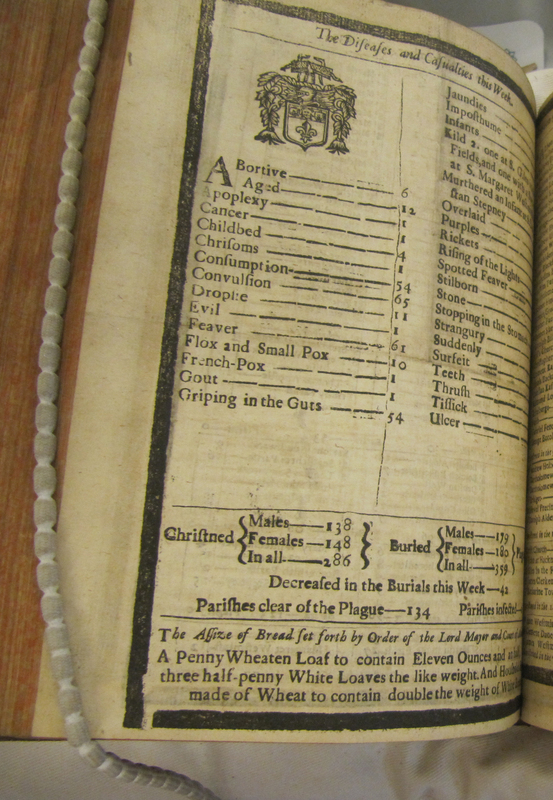 The Diſeaſes and Caſualties this Week.
ABortive——— 6
Aged——— 12
Apoplexy——— 1
Cancer——— 1
Childbed——— 4
Chriſoms——— 1
Conſumption——— 54
Convulſion——— 65
Dropſie——— 11
Evil——— 1
Feaver——— 61
Flox and Small Pox——— 10
French-Pox——— 1
Gout——— 1
Griping in the Guts——— 54
Jaundies
Impoſthume
Infants
Kild 2. one at S.
Fields, and one
at S. Margaret
Murthered an Infant
ſtan Stepney
Overlaid
Purples
Rickets
Riſing of the Lights
Spotted Feaver
Stilborn
Stone
Stopping in the
Strangury
Suddenly
Surfeit
Teeth
Thruſh
Tiſſick
Ulcer
Chriſtned { Males——138 Females——148 In all——286 } Buried { Males——179 Females——180 In all——359 }
Decreaſed in the Burials this Week——42
Pariſhes clear of the Plague——134 Pariſhes infected
The Aſſize of Bread ſet forth by Order of the Lord Mayor and Court of
A Penny Wheaten Loaf to contain Eleven Ounces and
three half-penny White Loaves the like weight. And
made of Wheat to contain double the weight of